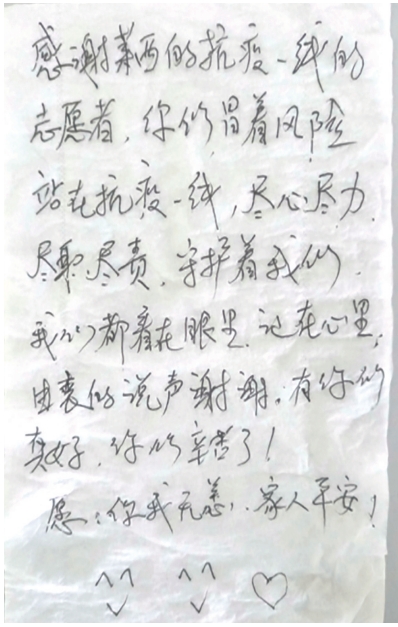 感谢莱西的抗疫一线的
志愿者，你们冒着风险
站在抗疫一线，尽心尽力，
尽职尽责，守护着我们，
我们都看在眼里，记在心里，
由衷的说声谢谢。有你们
真好，你们辛苦了！
愿：你我无恙，家人平安！